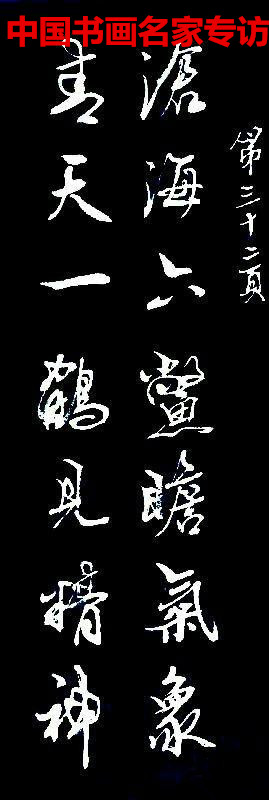 中国书画名家专访
第三十二頁
滄海六鰲瞻氣象
青天一鶴見精神